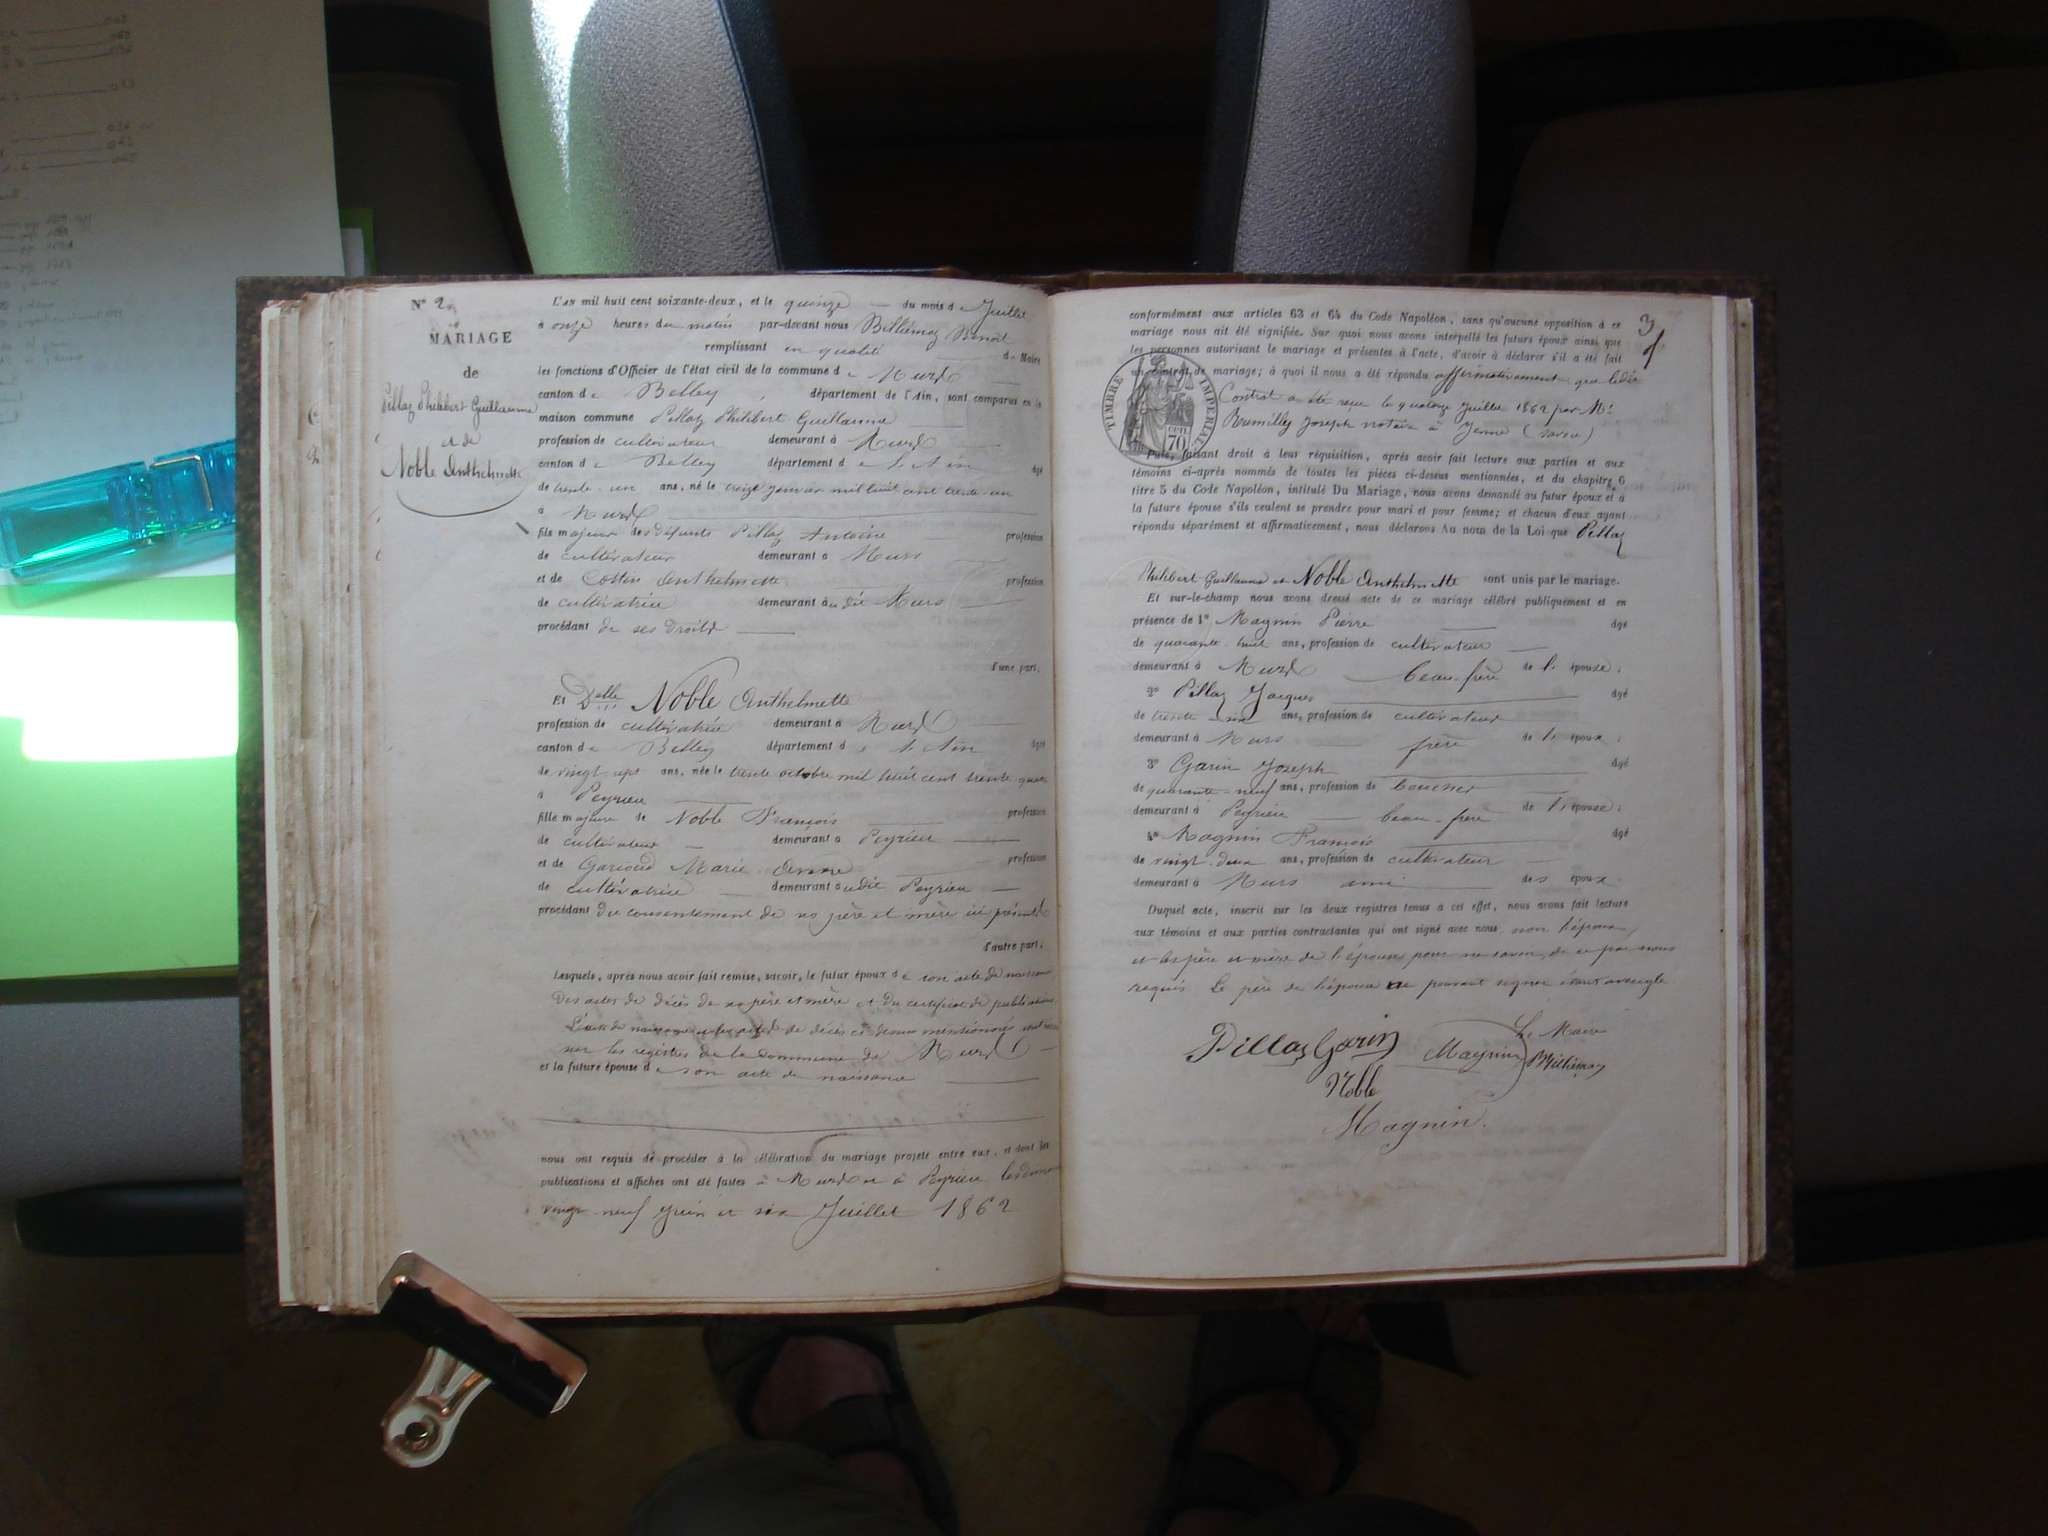 N° 2
MARIAGE
de
Pillaz Philibert Guillaume
et de
Noble Anthelmette
L'AN mil huit cent soixante-deux, et le quinze du mois de Juillet
à onze heures du matin par-devant nous Billiémaz Benoit
remplissant en qualité de Maire
les fonctions d'Officier de l'état civil de la commune de Murs
canton de Belley, département de l'Ain, sont comparus en la
maison commune Pillaz Philibert Guillaume
profession de cultivateur demeurant à Murs
canton de Belley département de l'Ain âgé
de trente-un ans, né le treize janvier mil huit cent trente un
à Murs
fils majeur des défunts Pillaz Antoine profession
de cultivateur demeurant à Murs
et de Cottin Anthelmette profession
de cultivatrice demeurant audit Murs
procédant de ses droits
d'une part;
Et Delle Noble Anthelmette
profession de cultivatrice demeurant à Murs
canton de Belley département de l'Ain âgée
de vingt-sept ans, née le trente octobre mil huit cent trente quatre
à Peyrieu
fille majeure de Noble François profession
de cultivateur demeurant à Peyrieu
et de Garioud Marie Anne profession
de cultivatrice demeurant audit Peyrieu
procédant du consentement de ses père et mère ici présents
d'autre part;
Lesquels, après nous avoir fait remise, savoir, le futur époux de son acte de naissance
des actes de décès de ses père et mère et du certificat de publications
L'acte de naissance et les actes de décès ci-dessus mentionnés sont
sur les registres de la commune de Murs
et la future épouse de son acte de naissance
nous ont requis de procéder à la célébration du mariage projeté entre eux, et dont les
publications et affiches ont été faites à Murs et à Peyrieu les dimanches
vingt-neuf Juin et six Juillet 1862
3
conformément aux articles 63 et 64 du Code Napoléon, sans qu'aucune opposition à ce
mariage nous ait été signifiée. Sur quoi nous avons interpellé les futurs époux ainsi que
les personnes autorisant le mariage et présentes à l'acte, d'avoir à déclarer s'il a été fait
un contrat de mariage; à quoi il nous a été répondu affirmativement que ledit
Contrat a été reçu le quatorze Juillet 1862 par Me
Rumilly Joseph notaire à Yenne (Savoie)
TIMBRE IMPERIAL
70
Puis, faisant droit à leur réquisition, après avoir fait lecture aux parties et aux
témoins ci-après nommés de toutes les pièces ci-dessus mentionnées, et du chapitre 6
titre 5 du Code Napoléon, intitulé Du Mariage, nous avons demandé au futur époux et à
la future épouse s'ils veulent se prendre pour mari et pour femme; et chacun d'eux ayant
répondu séparément et affirmativement, nous déclarons Au nom de la Loi que Pillaz
Philibert Guillaume et Noble Anthelmette sont unis par le mariage.
Et sur-le-champ nous avons dressé acte de ce mariage célébré publiquement et en
présence de 1° Magnin Pierre âgé
de quarante-huit ans, profession de cultivateur
demeurant à Murs beau-frère de l'épouse;
2° Pillaz Jacques âgé
de trente-six ans, profession de cultivateur
demeurant à Murs frère de l'époux;
3° Garin Joseph âgé
de quarante-neuf ans, profession de boucher
demeurant à Peyrieu beau-frère de l'épouse;
4° Magnin François âgé
de vingt-deux ans, profession de cultivateur
demeurant à Murs ami des époux.
Duquel acte, inscrit sur les deux registres tenus à cet effet, nous avons fait lecture
aux témoins et aux parties contractantes qui ont signé avec nous, non l'épouse,
et les père et mère de l'épouse pour ne savoir, de ce par nous
requis. Le père de l'épouse ne pouvant signer étant aveugle
Pillaz Garin Magnin Le Maire
Billiémaz
Noble
Magnin.